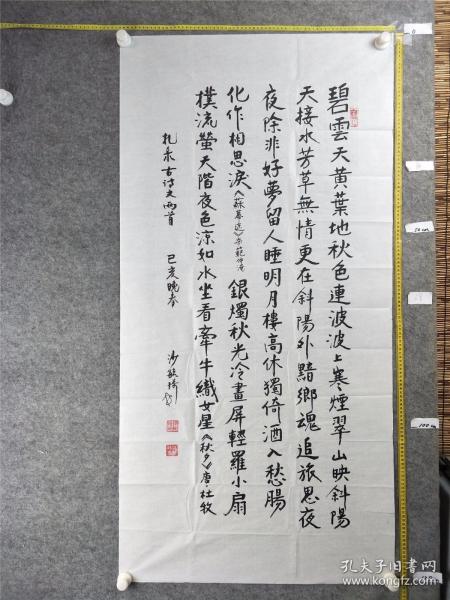 碧雲天黄葉地秋色連波波上寒煙翠山映斜陽
天接水芳草無情更在斜陽外黯鄉魂追旅思夜
夜除非好夢留人睡明月樓高休獨倚酒入愁腸
化作相思淚《蘇幕遮》宋範仲淹 銀燭秋光冷畫屏輕羅小扇
樸流螢天階夜色涼如水坐看牽牛織女星《秋夕》唐·杜牧
札录古诗文兩首 己亥晚春 沙敏
0
50cm
100cm
孔夫子旧书网
www.kongfz.com